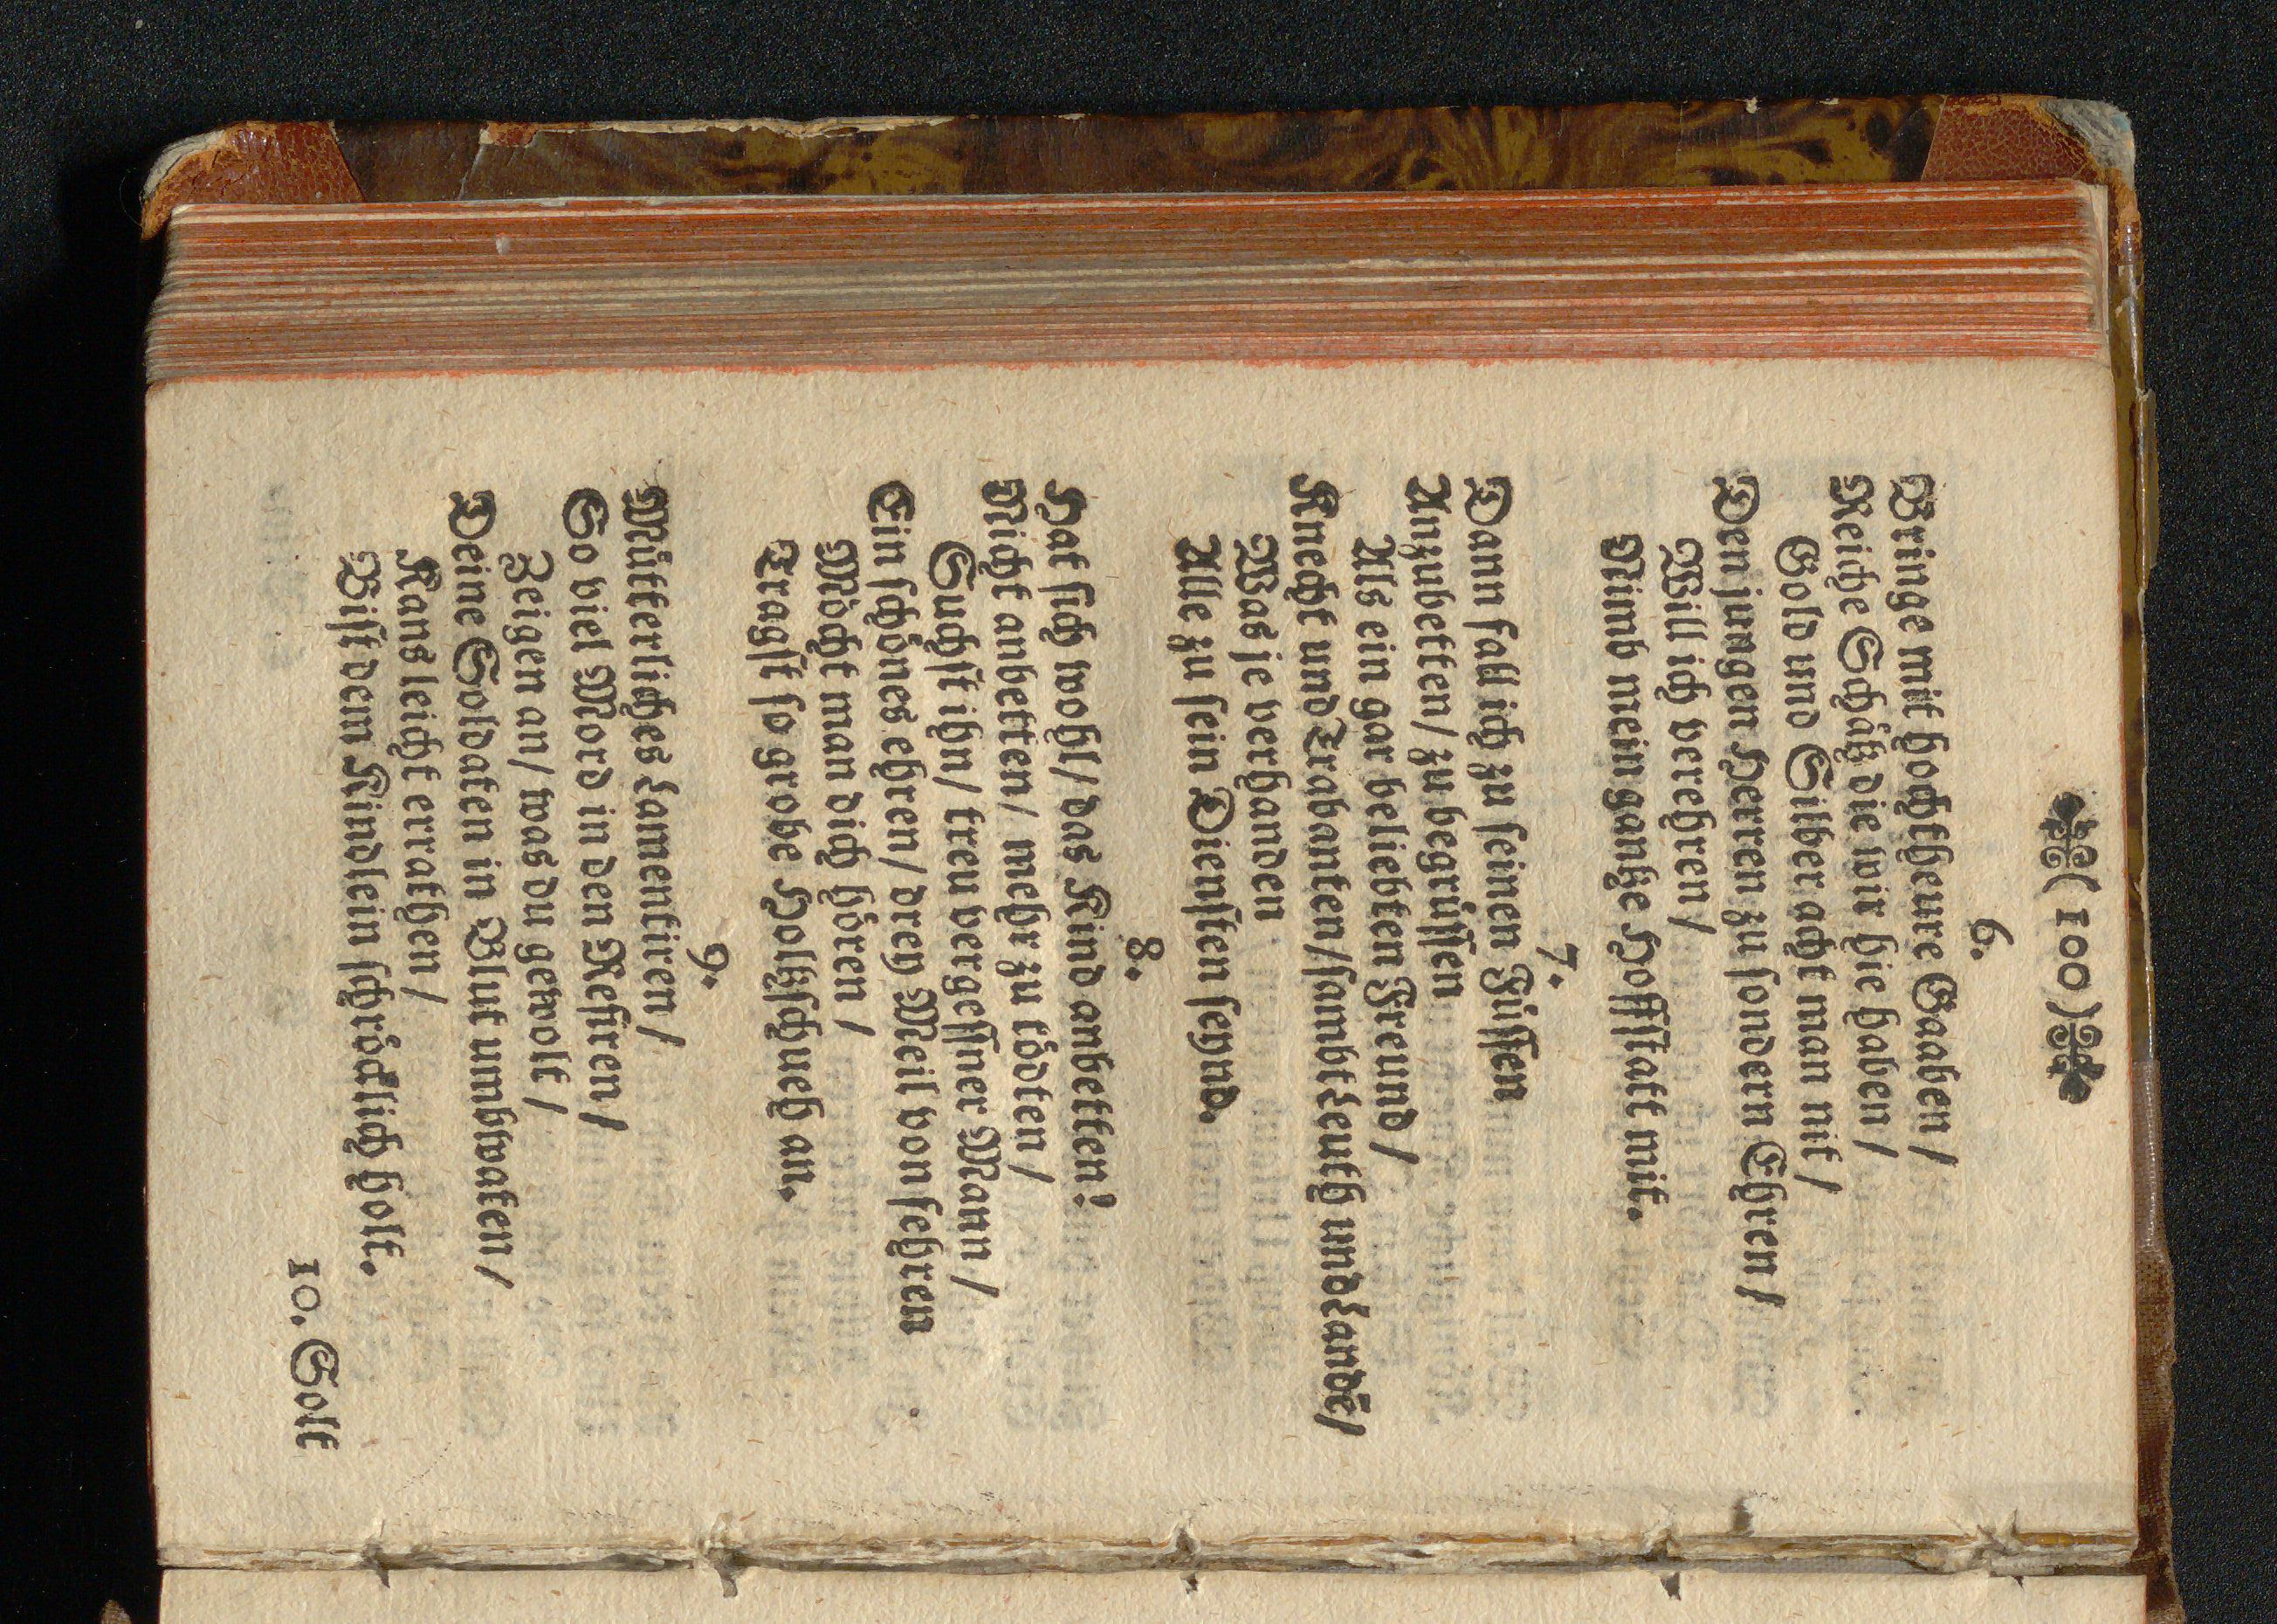 (100)
6.
Bringe mit hochtheure Gaaben/
Reiche Schätz die wir hie haben/
Gold und Silber acht man nit/
Den jungen Herren zu sondern Ehren/
Will ich verehren/
Nimb mein gantze Hoffstatt mit.
7.
Dann fall ich zu seinen Füssen
Anzubetten/ zu begrüssen
Als ein gar beliebten Freund/
Knecht und Trabanten/ sambt Leuth und Landē/
Was je verhanden
Alle zu sein Diensten seynd.
8.
Hat sich wohl/ das Kind anbetten!
Nicht anbetten/ mehr zu tödten/
Suchst ihn/ treu vergessner Mann/
Ein schönes ehren/ drey Meil von sehren
Möcht man dich hören/
Tragst so grobe Holtzschueh an.
9.
Mütterliches Lamentiren/
So viel Mord in den Refiren/
Zeigen an/ was du gewolt/
Deine Soldaten in Blut umbwaten/
Kans leicht errathen/
Bist dem Kindlein schrödlich holt.
10. Solt